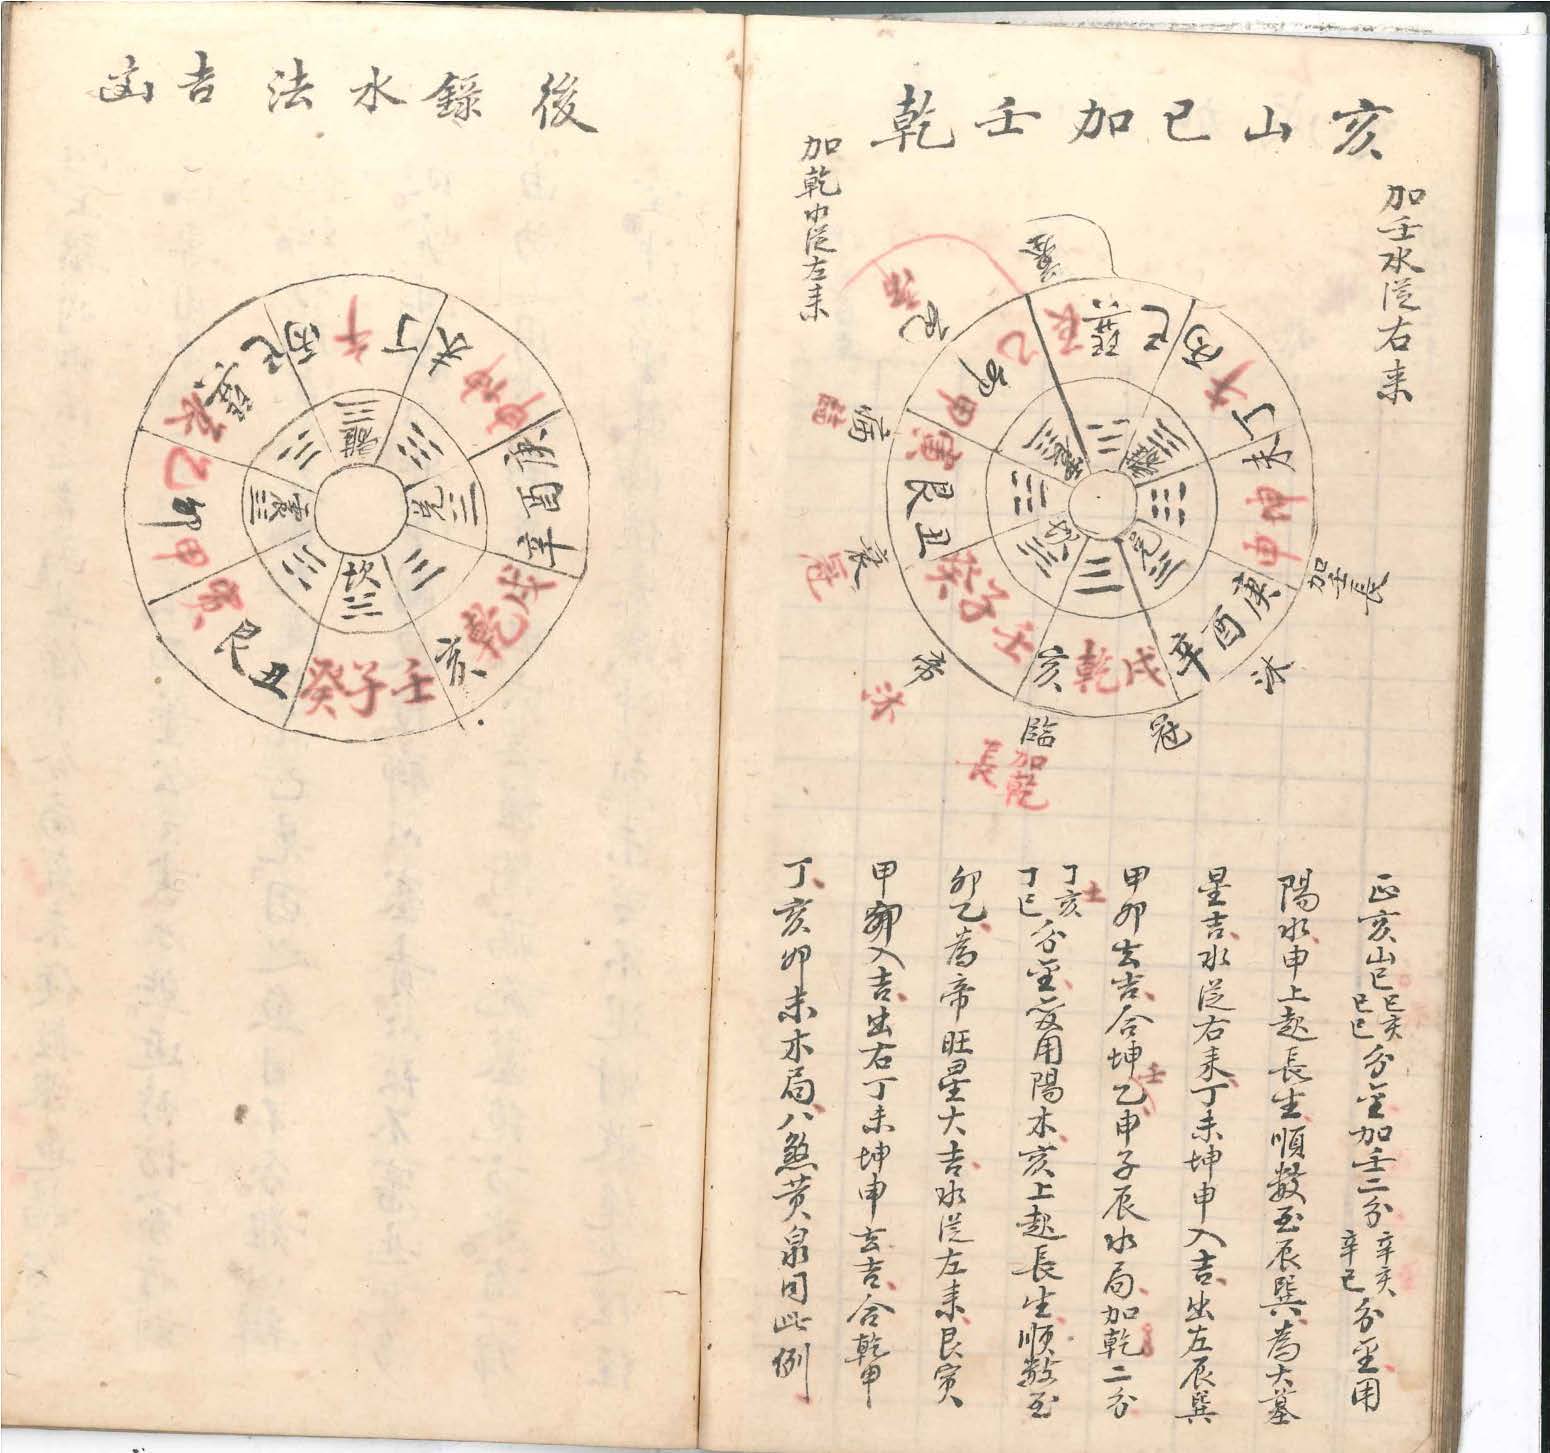 亥山巳加壬乾
加壬水从右来
加乾水从左来
墓
死
病
臨
衰
冠
旁
沐
臨
加乾
長
冠
沐
加壬長
巽巳
丙午丁
未坤申
庚酉辛
戌乾亥
壬子癸
丑艮寅
甲卯乙
辰
震
坎
兌
離
正亥山巳己亥己巳分金加壬二分辛亥辛巳分金用
陽水申上起長生順数至辰巽為大墓
星吉水从右来丁未坤申入吉出左辰巽
甲卯去吉合坤乙壬申子辰水局加乾二分
丁亥丁巳土分金爻用陽木亥上起長生順数至
卯乙為帝旺星大吉水从左来艮寅
甲卯入吉出右丁未坤申去吉合乾甲
丁亥卯未木局八煞黄泉同此例
後錄水法吉凶
丙午丁
未坤申
庚酉辛
戌乾亥
壬子癸
丑艮寅
甲卯乙
辰巽巳
離
兌
坎
震